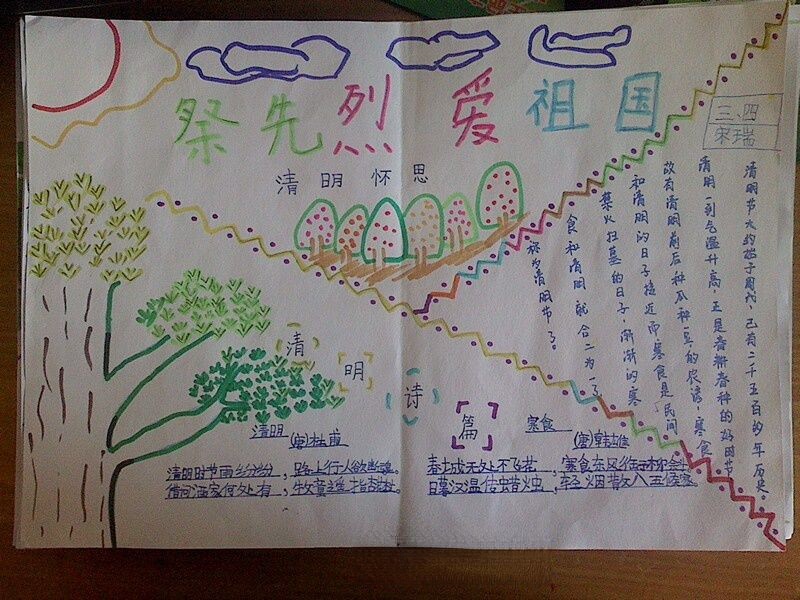 祭先烈 爱祖国
三、四
宋瑞
清明怀思
清明节大约始于周代，已有二千五百的年历史。
清明一到气温升高，正是春耕春种的好时节
故有清明前后种瓜种豆的农谚，寒食
和清明的日子接近而寒食是民间
禁火扫墓的日子，渐渐的寒
食和清明就合二为一了
称为清明节了。
清明诗篇
清明
(唐)杜甫
清明时节雨纷纷，路上行人欲断魂。
借问酒家何处有，牧童遥指杏花村。
寒食
(唐)韩雄
春城无处不飞花，寒食东风御
日暮汉温传蜡烛，轻烟散入五侯家。